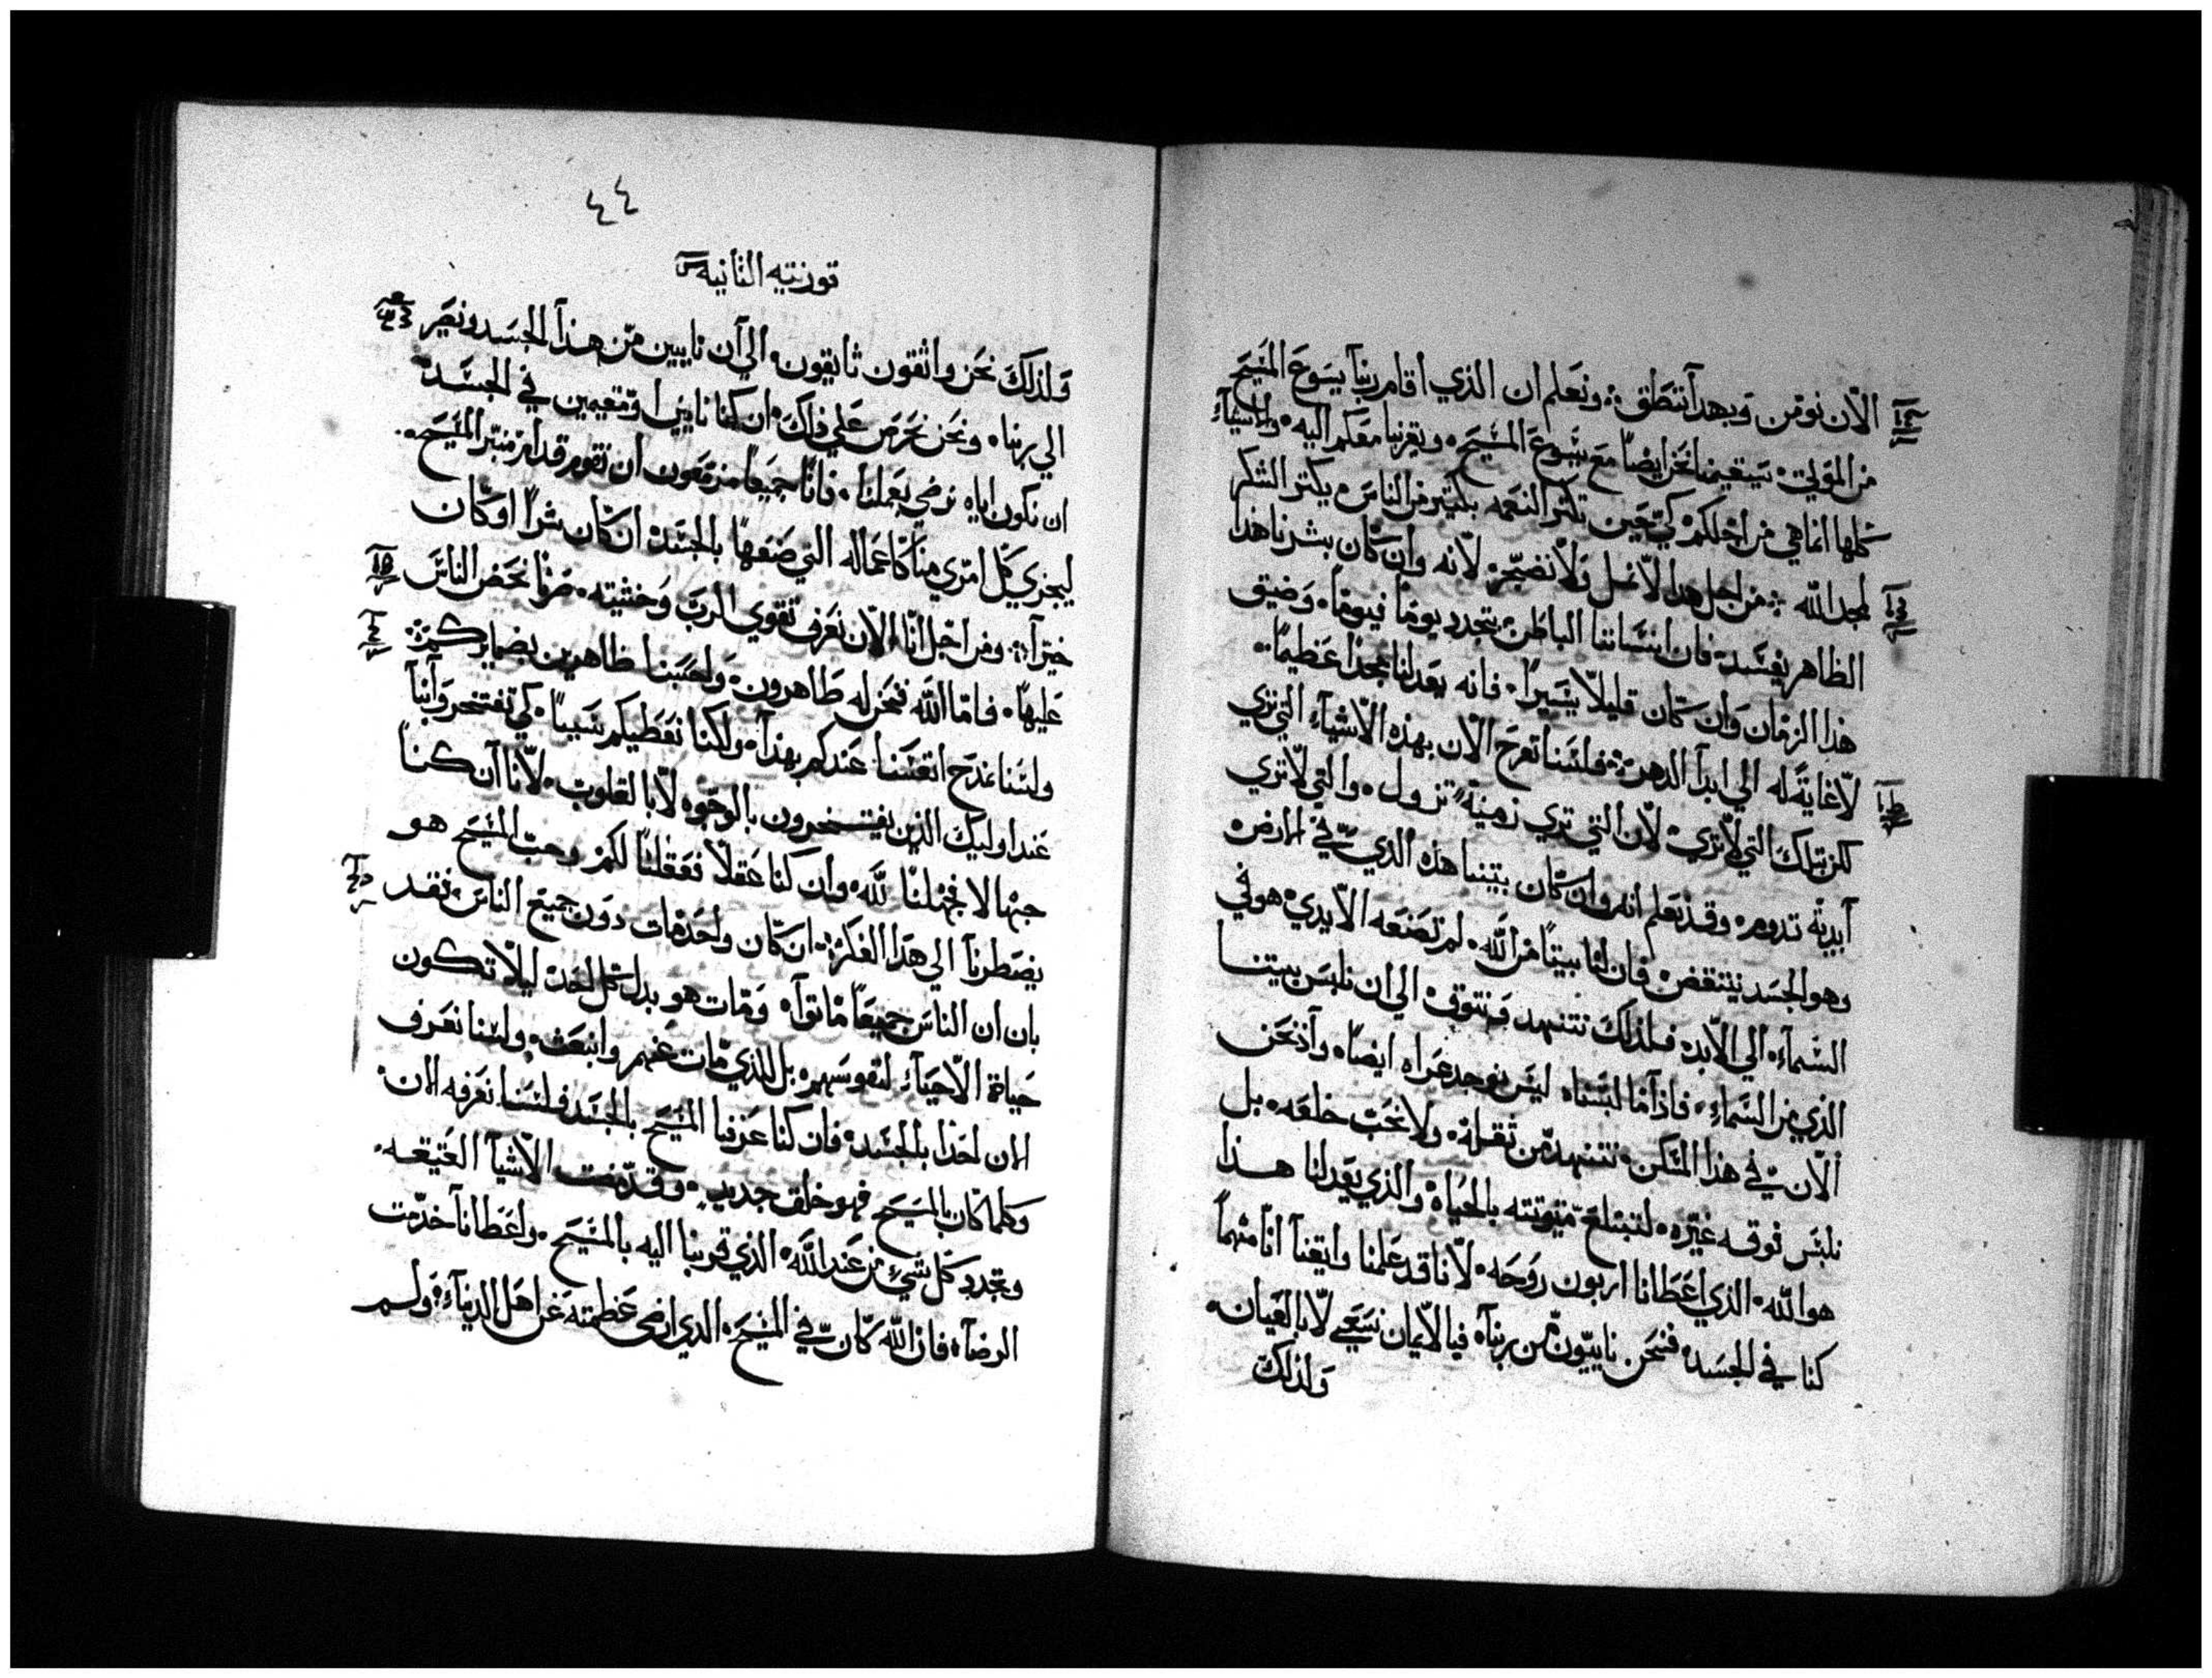 الآن نومن وبهدا ننطق ونعلم ان الذي اقام ربنا يسوع المسيح
من الموتي سيقيمنا نحن ايضًا مع يسوع المسيح ويقربنا معكم اليه والاشيآء
كلها انما هي من اجلكم كي حين تكتر النعمه بكتير من الناس يكتر الشكر
لمجد الله من اجل هدا لا نمل ولا نضجر لانه وان كان بشرنا هذا
الظاهر يفسد فان انساننا الباطن يتجدد يومًا فيومًا وضيق
هذا الزمان وان كان قليلا يسيرًا فانه يعد لنا مجدًا عظيمًا
لا غاية له الي ابد الدهر فلسنا نفرح الان بهذه الاشيآء التي تري
لكن بتلك التي لا تري لان التي تري زمنية تزول والتي لا تري
ابدية تدوم وقد نعلم انه وان كان بيتنا هذه الذي في الارض
وهو الجسد ينتقض فان لنا بيتًا من الله لم تصنعه الايدي هو في
السمآء الي الابد فلذلك نتنهد ونتوق الي ان نلبس بيتنا
الذي من السمآء فاذا ما لبسناه ليس نوجد عراه ايضًا واذ نحن
الان في هذا المسكن نتنهد من ثقله ولا نحب خلعه بل
نلبس فوقه غيره لتبتلع ميوتته بالحياة والذي يعد لنا هذا
هو الله الذي اعطانا اربون روحه لانا قد علمنا وايقنا انا مهما
كنا في الجسد فنحن نايبون من ربنا فبالايمان نسعي لا بالعيان
ولذلك
٤٤
قورنتيه الثانيه
ولذلك نحن واثقون تايقون الي ان نايبين من هذا الجسد ونصير
الي ربنا ونحن نحرص علي ذاك ان كنا نايبين او مقيمين في الجسد
ان نكون اياه نرضي بعملنا فانا جميعًا مزمعون ان نقوم قدام منبر المسيح
ليجزي كل امري منا كاعماله التي صنعها بالجسد ان كان شرًا او كان
خيرًا ومن اجل انا الان نعرف تقوي الرب وخشيته صرنا نحض الناس
عليها فاما الله فنحن له ظاهرون واحسبنا ظاهرين بضمايركم
ولسنا نمدح انفسنا عندكم بهذا ولكنا نعطيكم سببًا كي تفتخروا بنا
عند اوليك الذين يفتخرون بالوجوه لا بالقلوب لانا ان كنا
جهالا فجهلنا لله وان كنا عقلا فعقلنا لكم وحب المسيح هو
يضطرنا الي هدا الفكر ان كان واحد مات دون جميع الناس فقد
بان ان الناس جميعًا ماتوا ومات هو بدل كل احد ليلا تكون
حياة الاحيآء لنفوسهم بل للذي مات عنهم وانبعث ولسنا نعرف
الان احدًا بالجسد فان كنا عرفنا المسيح بالجسد فلسنا نعرفه الان
وكلما كان بالمسيح فهو خلق جديد وقد مضت الاشيآ العتيقه
وتجدد كل شيء من عند الله الذي قربنا اليه بالمسيح واعطانا خدمت
الرضآ فان الله كان في المسيح الذي ارضي عظمته عن اهل الدنيآ ولم